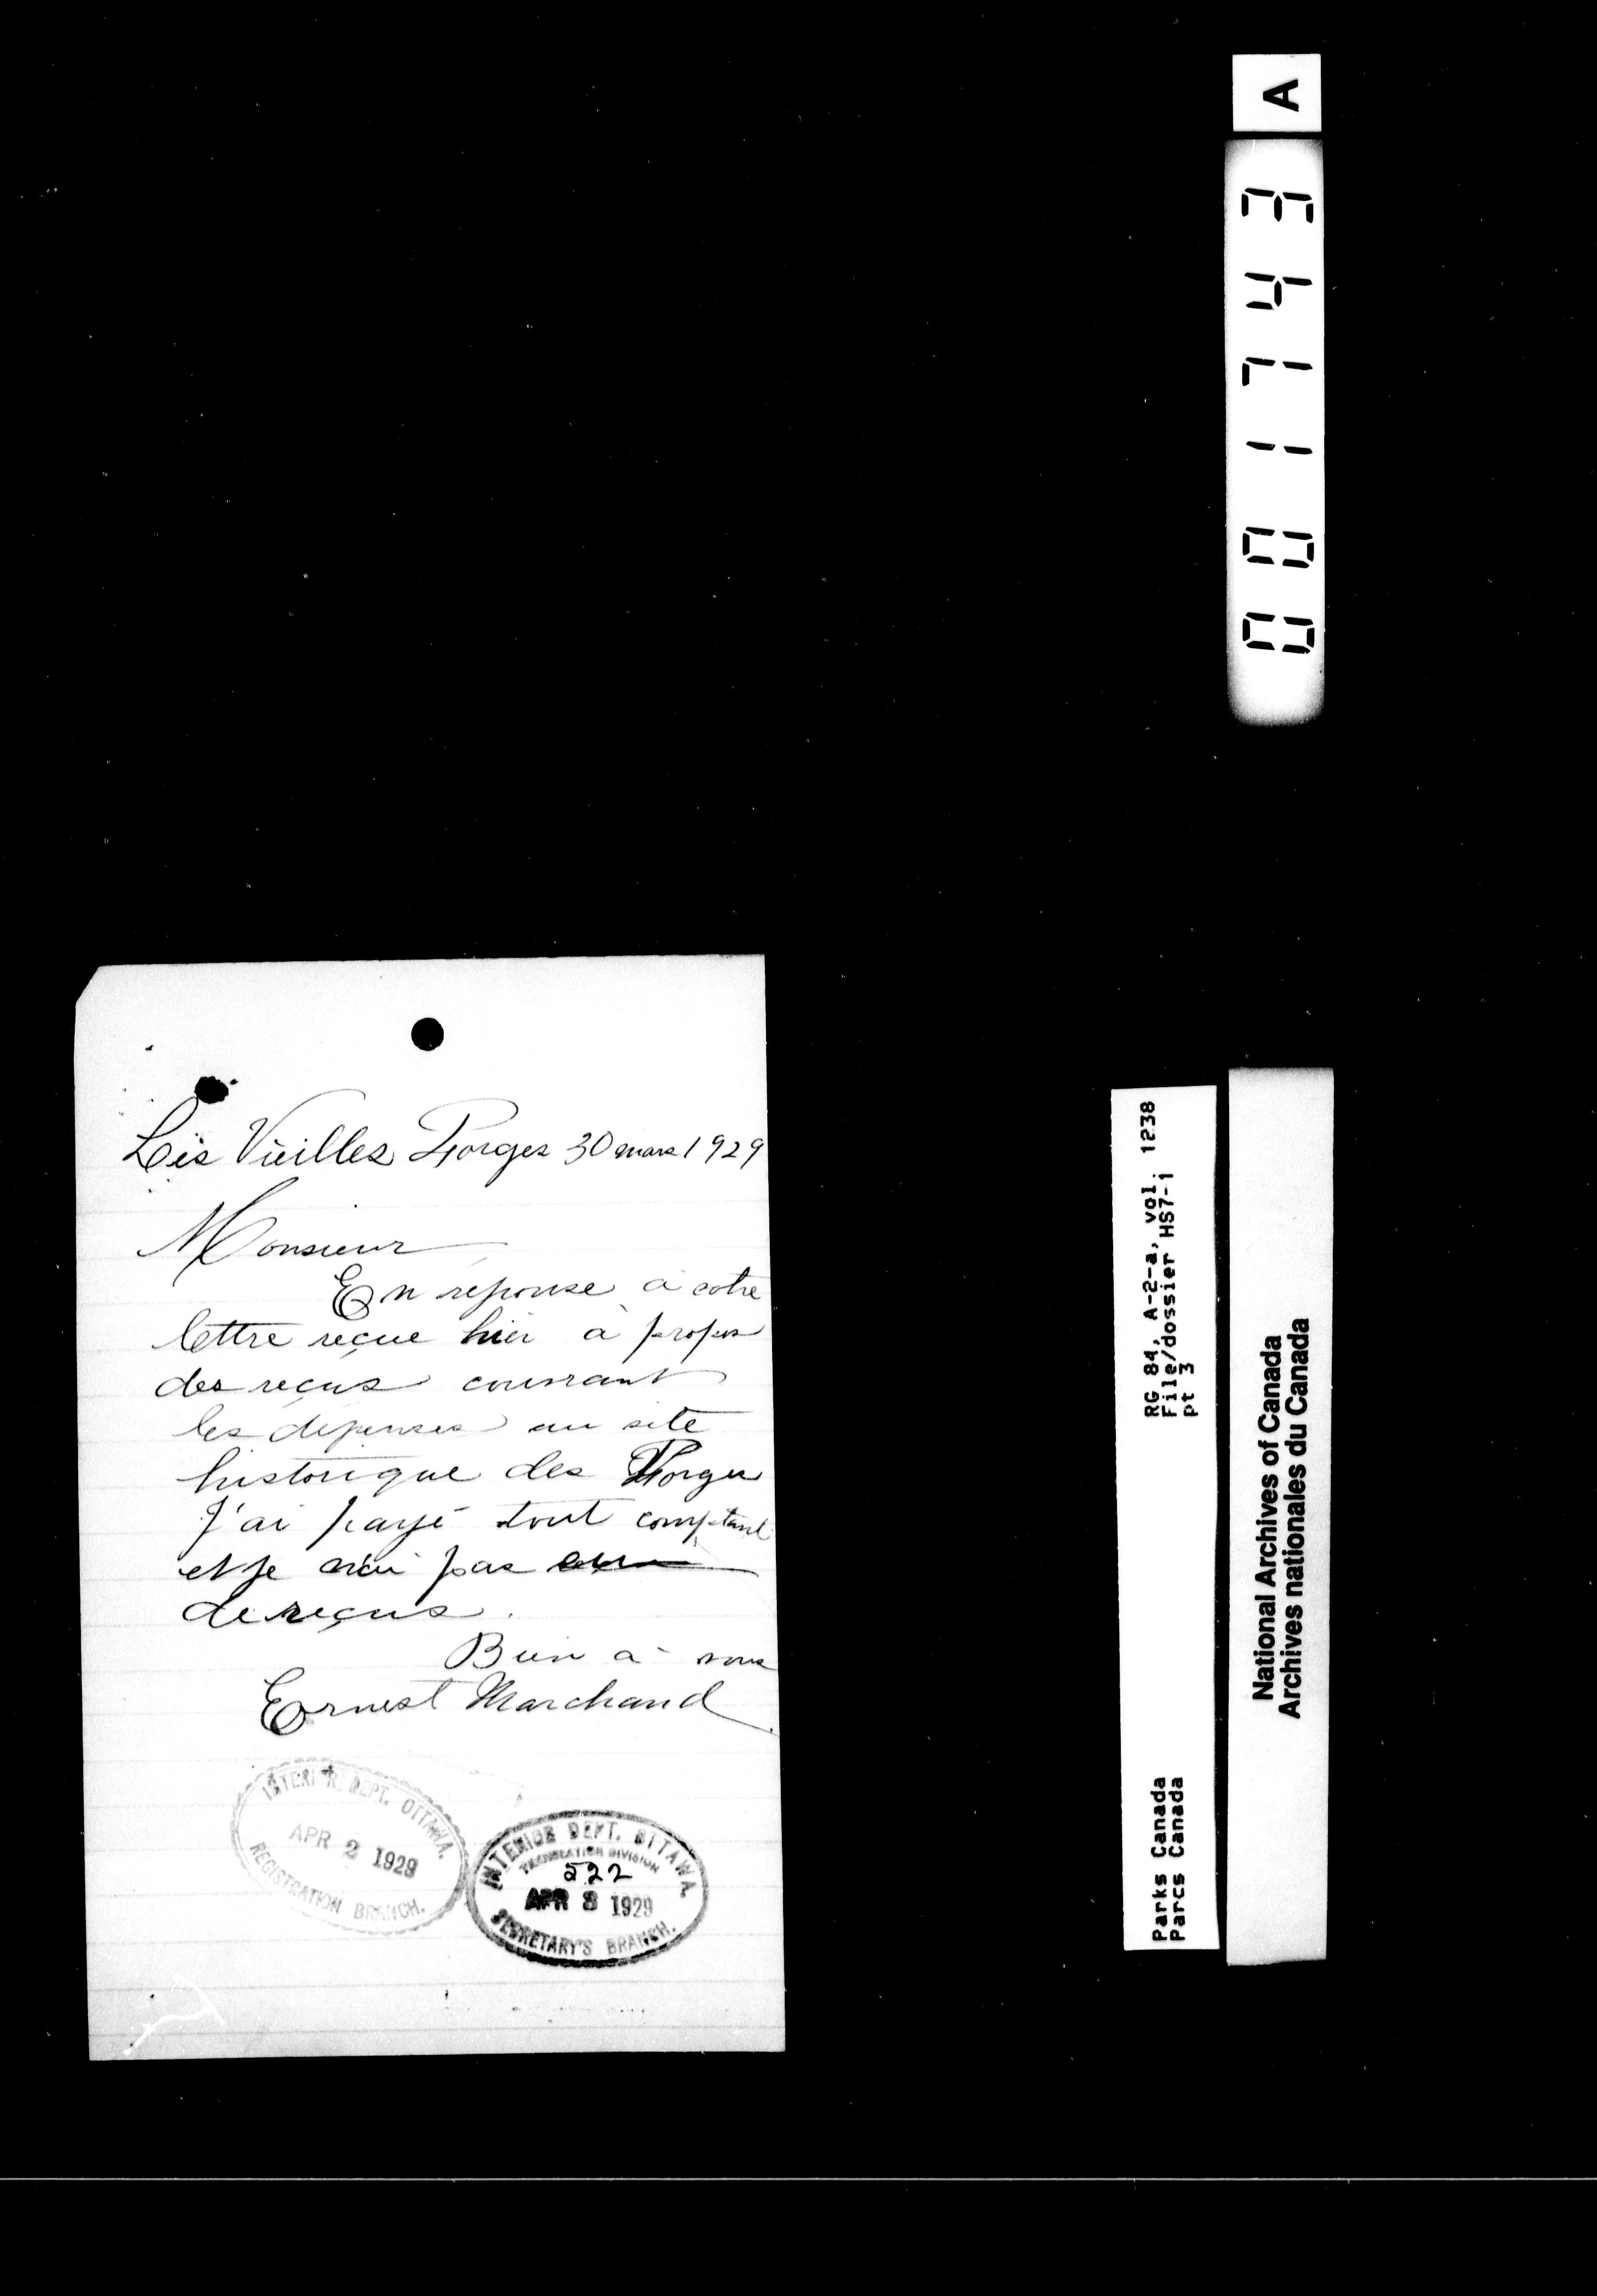 Les Vieilles Forges 30 mars 1929
Monsieur
En reponse a votre
lettre reçue hier à propos
des reçus couvrant
les dépenses au site
historique des Forges
J'ai payé tout comptant
et je n'ai pas
de reçus.
Bien à vous
Ernest Marchand
INTERIOR DEPT. OTTAWA.
APR 2 1929
REGISTRATION BRANCH.
INTERIOR DEPT. OTTAWA.
TRANSLATION DIVISION
522
APR 3 1929
SECRETARY'S BRANCH.
A
RG 84, A-2-a, vol. 1238
File/dossier HS7-1
pt 3
Parks Canada
Parcs Canada
National Archives of Canada
Archives nationales du Canada